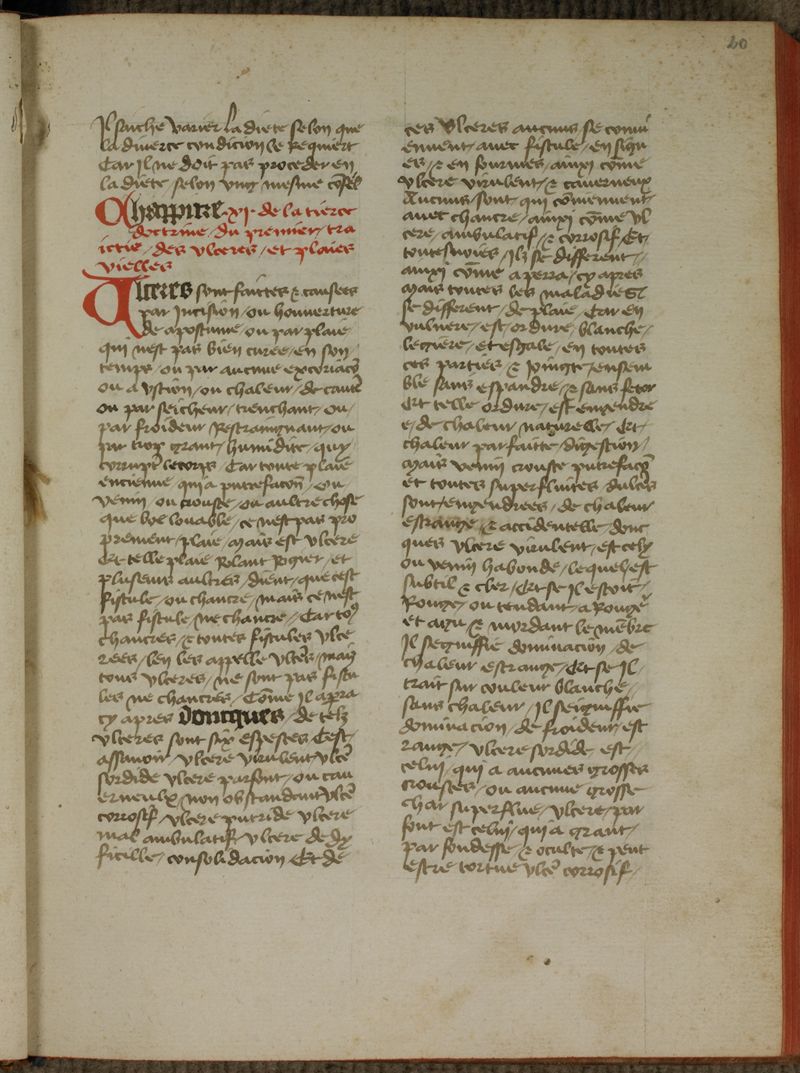 20
Il sache varier la diete selon que
la diverce condicion le requiert
Car il ne doit pas proceder en
la diete / selon ung mesme cōseil
Chappitre .xi. de la tierce
doctrine / du premier / tra
ictie / des ulceres / et plaies
vielles
Ulceres sont faictes & causees
par incision / ou houverture
de apostume / ou par plaie
qui nest pas bien curee / en son
temps / ou par aucune excoriacō
ou a ustion / ou chaleur / de cautē
ou par seicheur / trenchant / ou /
par froideur restraingnant / ou
par trop grant / humidite / qui
corrupt le corps / Car toute plaie
encienne / qui a putrefacōn / ou
venin / ou crouste / ou aultre chose
que boe louable / ce nest pas pro
prement / plaie / mais est ulcere
Et telle plaie Rolant Rogier / et
pluseurs aultres / dient / que cest
fistule / ou chancre / mais ce nest
pas fistule / ne chancre / Car to9
chancres / & toutes fistules ulce
rees / len les appelle ulcēs / mais
tous ulceres / ne sont pas fistu
les ne chancres / Cōme il apera
cy apres doncques / de telz
ulceres sont six especes / Cest /
assavoir / ulcere virulent ulcē
sordide ulcere parfont / ou cav
erneulx / non obstandant ulcē
corrosif / ulcere putride ulcere
mal ambulatif / ulcere de dy
ficille / consolidacion Et de
ces ulceres aucuns se convi
ennent / avec fistule / en sign
es / & en fourmes / ainxi cōme
ulcere virulent / & caverneux
Aucuns / sont / qui conviennent
avec chancre / ainxi cōme ul
cere / ambulatif / & corrosif / Et /
toutesvoies / ilz se different /
ainxi cōme aperra / cy apres
mais toutes les maladies
se different / de plaie / Car en
vulnere / est / ordure / blanche /
legiere / et esgale / en toutes
ces parties / & joingt / ensem
ble sans espandre / & sans fetor
Et telle ordure / est engendre
e / de chaleur naturelle / Et /
chaleur parfaitte / digestion /
Mais venin crouste putrefacō
et toutes superfluites / dulces
sont / engendrees / de chaleur
estrange / & accidentelle / donc
ques ulcere virulent / est cely
ou venin habonde / lequel est
subtil & cler / Et se il estoit /
Rouge / ou tendant / a Rouge
et aigu & mordant le mēbre
Il segniffie dominacion / de
chaleur estrange / Et se il /
trait sur couleur blanche /
sans chaleur / il segniffie
dominacion / de froideur / est
range / ulcere sordide est /
celui / qui a aucunes grosses
croustes / ou aucune grosse
char superflue / ulcere / par
font est celui / qui a grant /
parfondesse / & oculte / & peut
estre tortue ulcē corrosif /